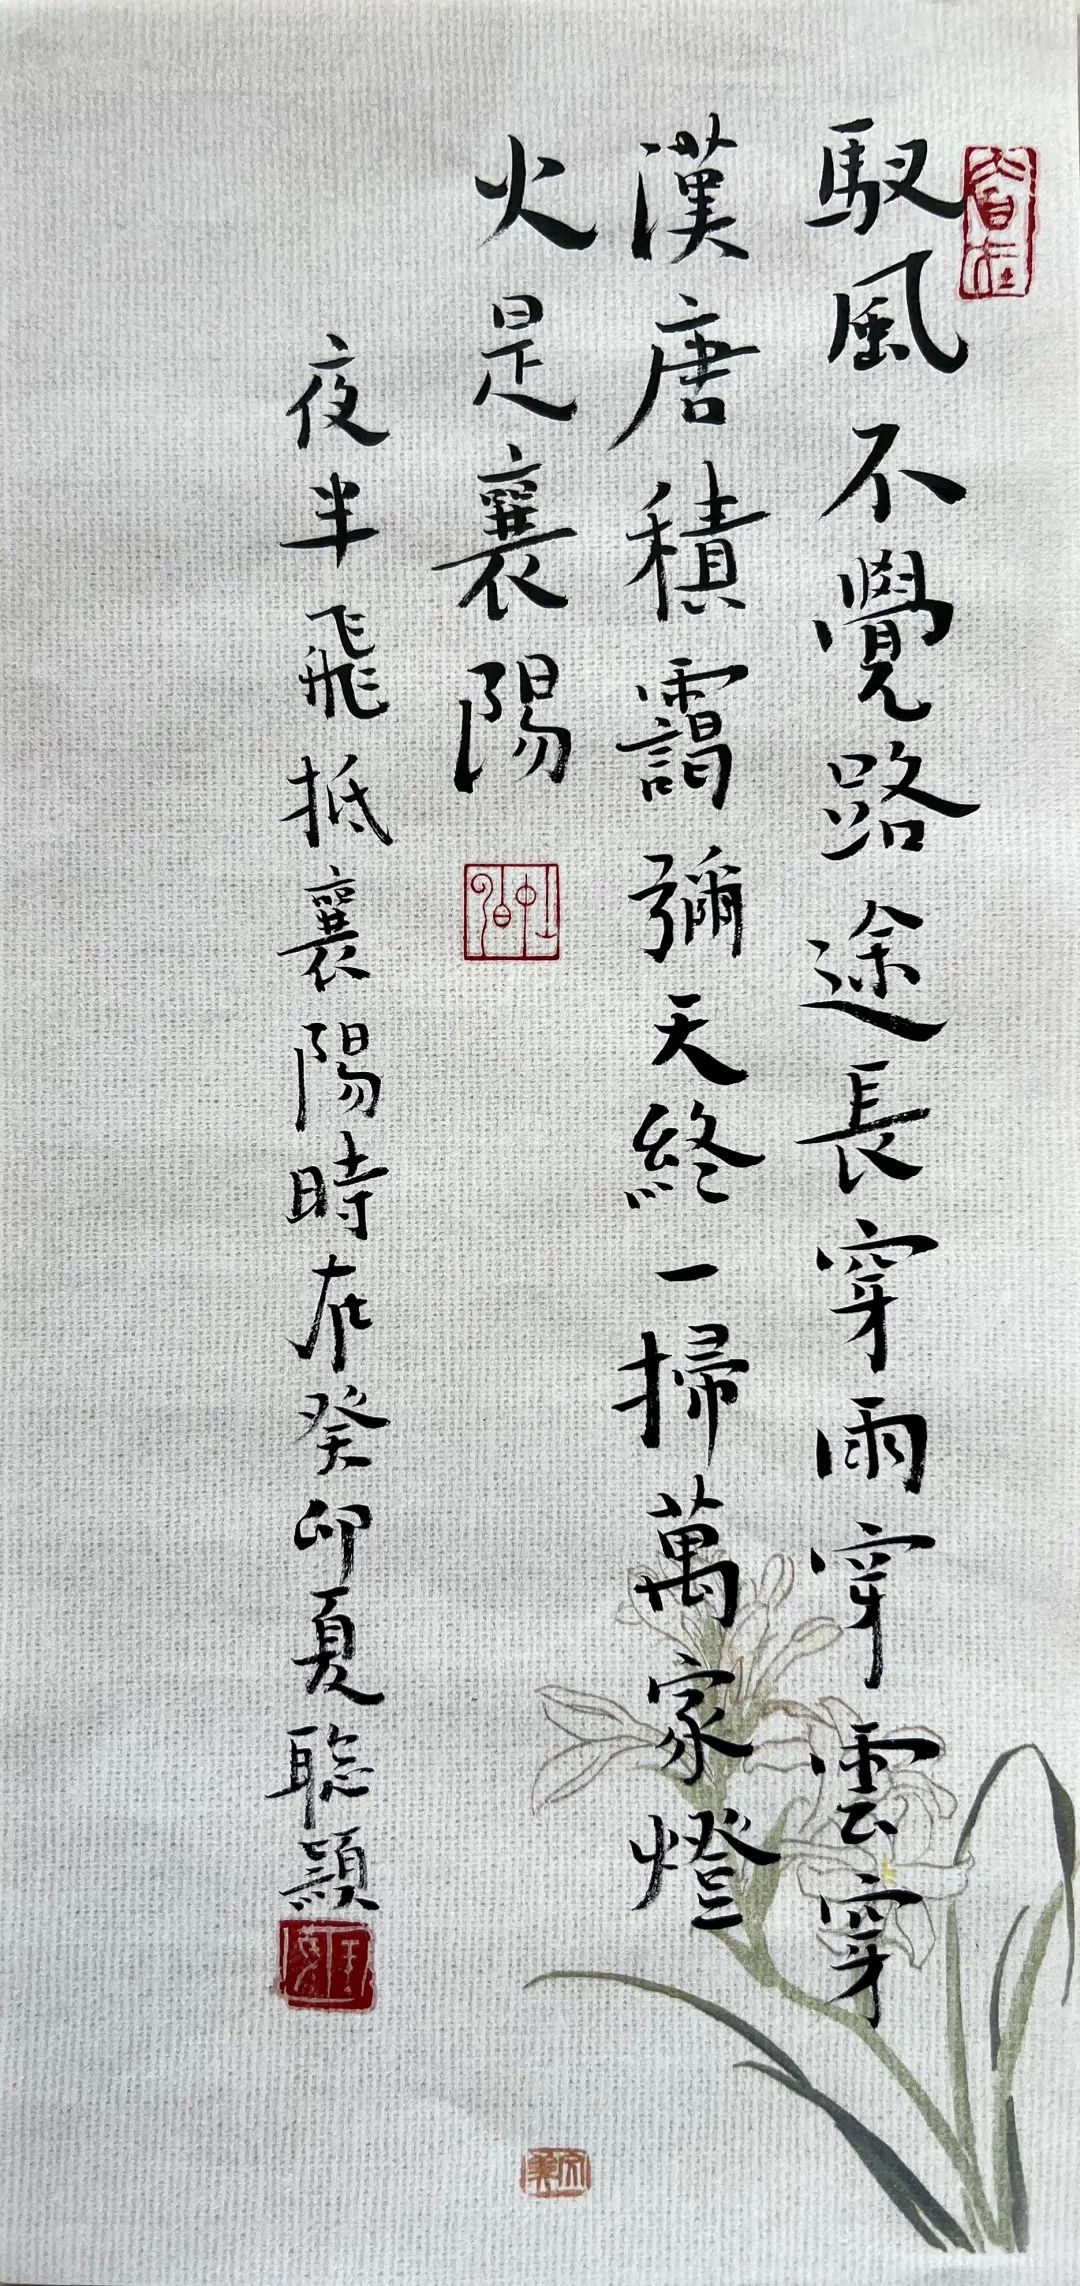 馭風不覺路途長穿雨穿雲穿
漢唐積靄彌天終一掃萬家燈
火是襄陽
夜半飛抵襄陽時在癸卯夏聪穎